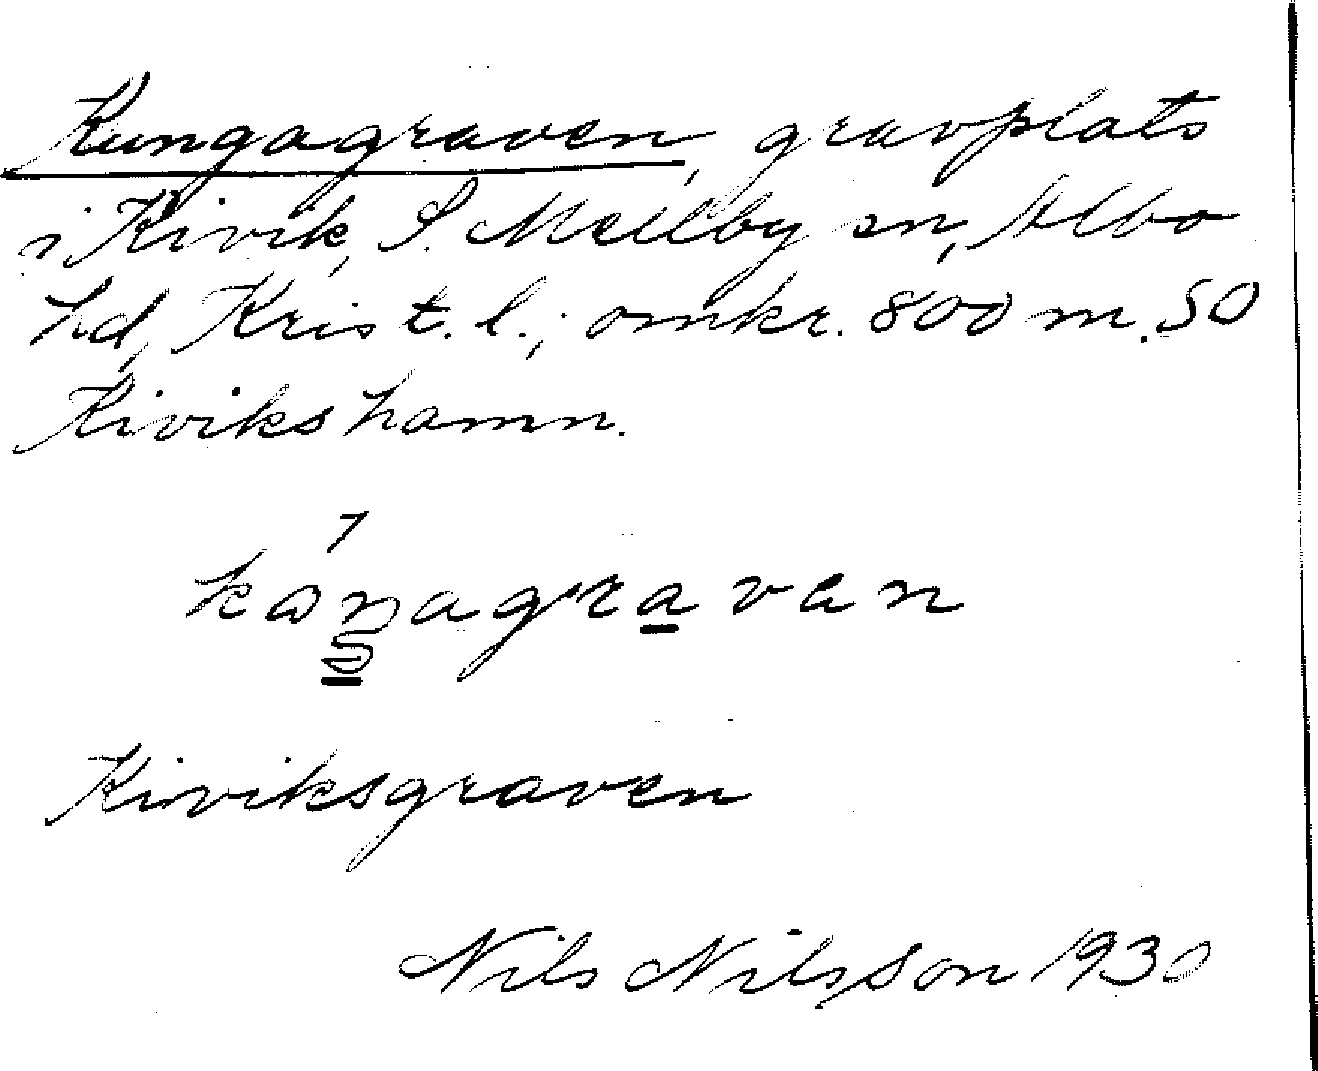 Kungagraven, gravplats
i Kivik, S. Mellby sn, Albo
hd, Krist. l.; omkr. 800 m. SO
Kivikshamn.
kåŋagravan
Kiviksgraven
Nils Nilsson 1930